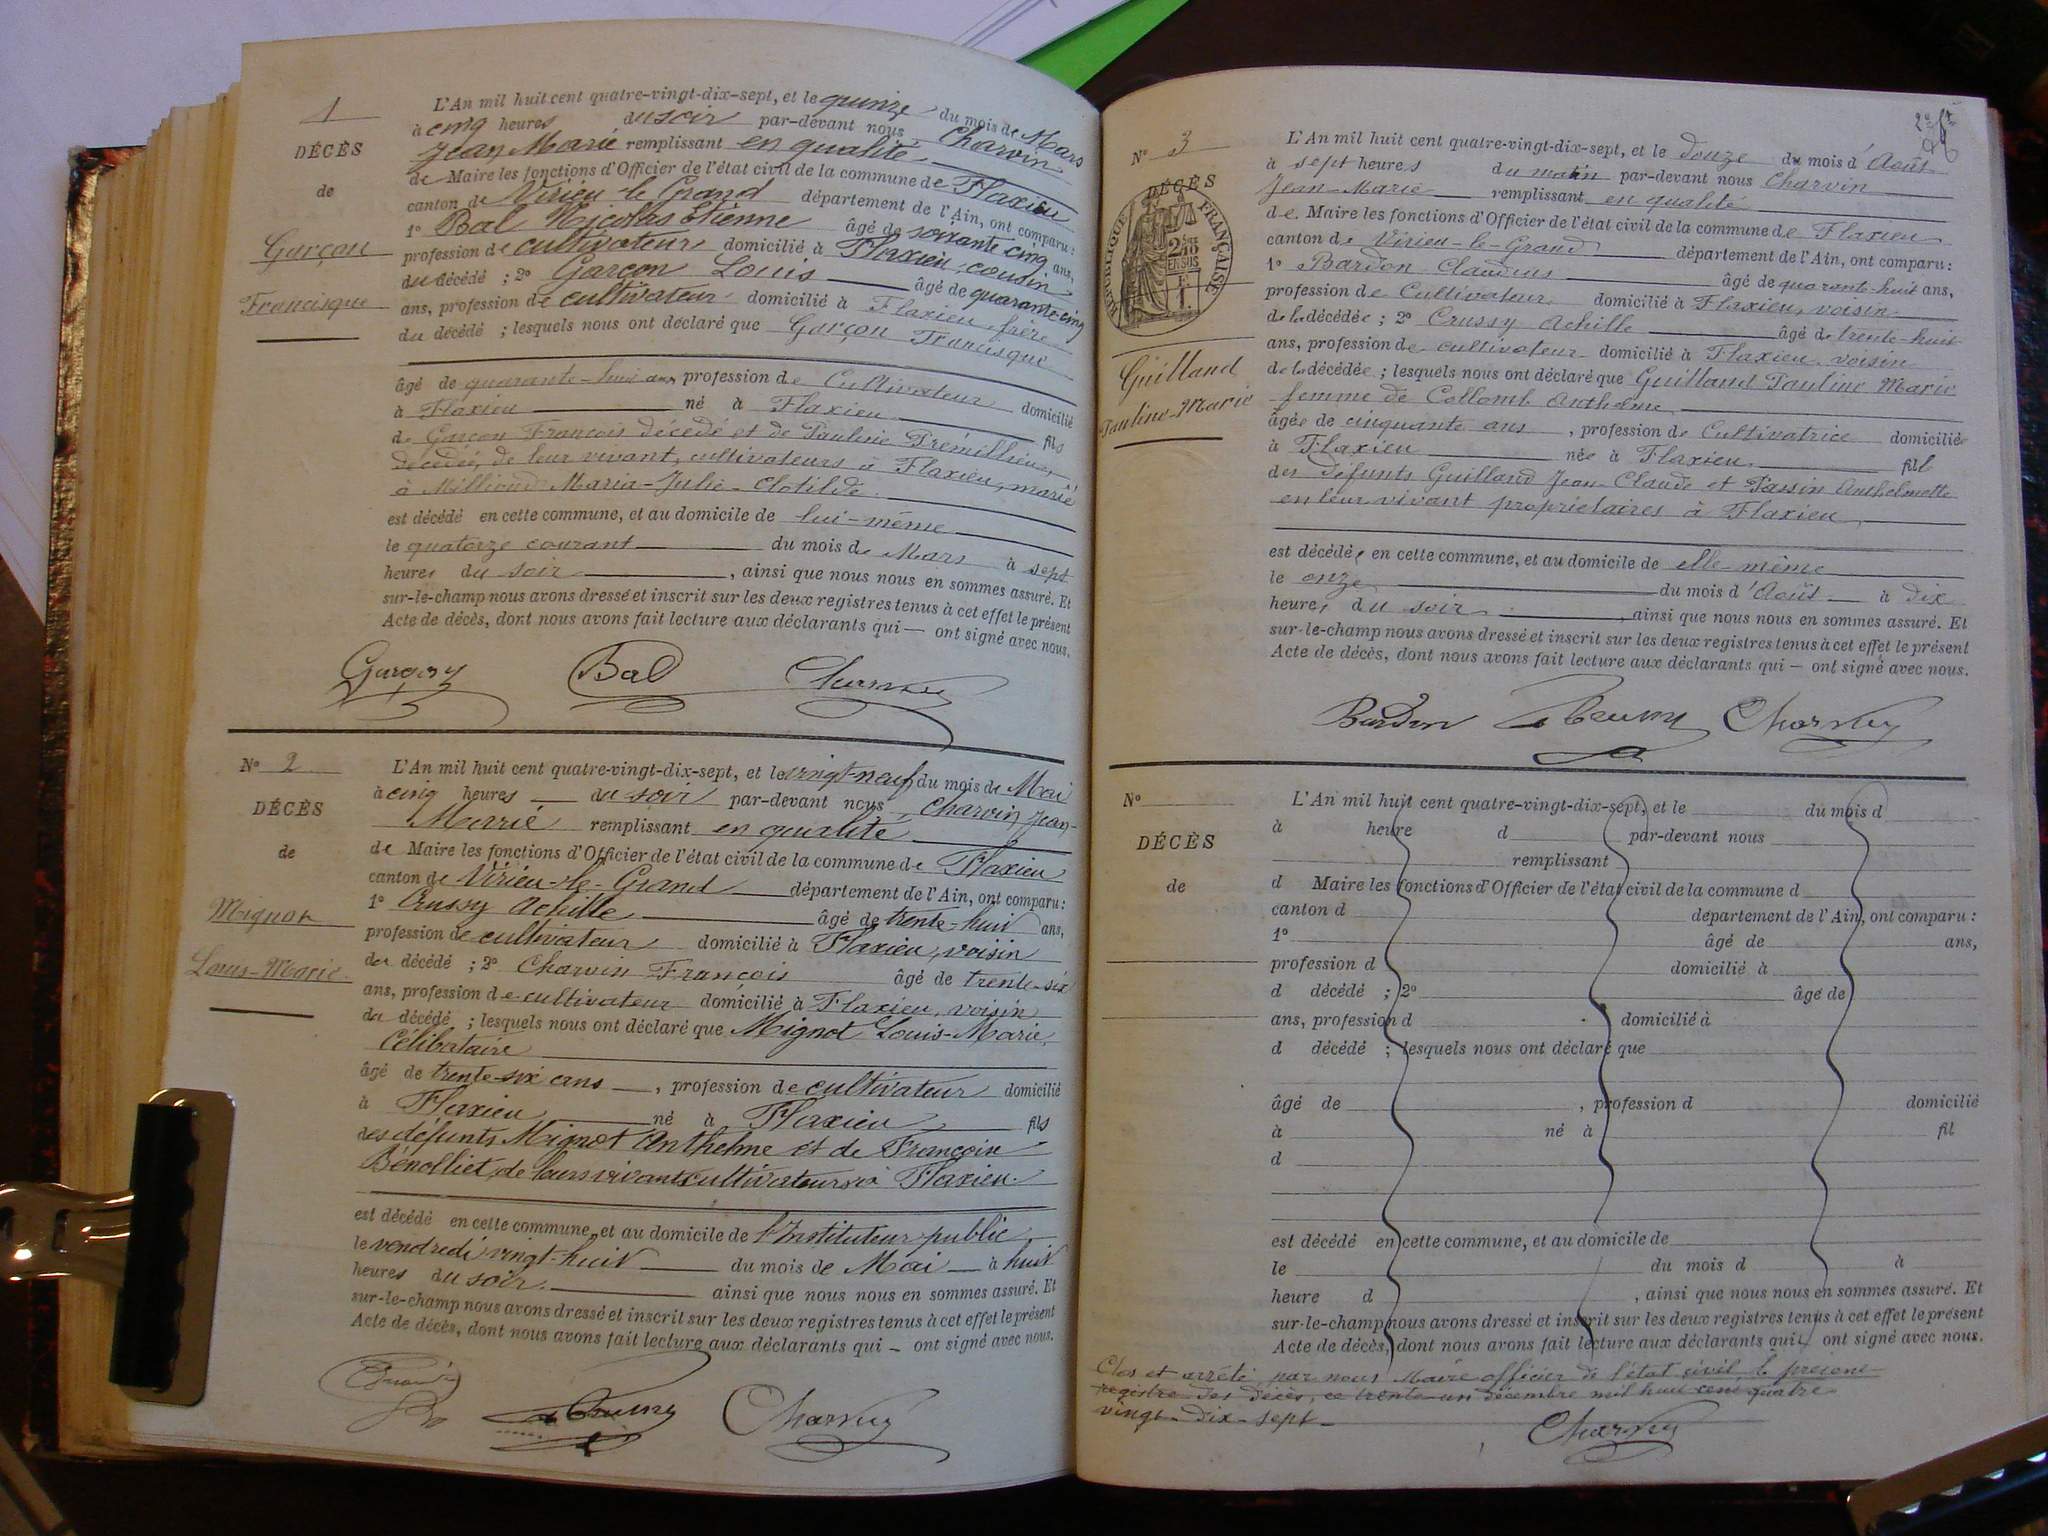 1
DÉCÈS
de
Garçon
Francisque
L'An mil huit cent quatre-vingt-dix-sept, et le quinze du mois de Mars
à cinq heures du soir par-devant nous Charvin
Jean Marie remplissant en qualité
de Maire les fonctions d'Officier de l'état civil de la commune de Flaxieu
canton de Virieu-le-Grand département de l'Ain, ont comparu :
1º Bal Nicolas Etienne âgé de soixante cinq ans,
profession de cultivateur domicilié à Flaxieu, cousin
du décédé ; 2º Garçon Louis âgé de quarante-cinq
ans, profession de cultivateur domicilié à Flaxieu, frère
du décédé ; lesquels nous ont déclaré que Garçon Francisque
âgé de quarante-huit ans profession de Cultivateur domicilié
à Flaxieu né à Flaxieu fils
de Garçon François décédé et de Pauline Prémillieu,
décédée, de leur vivant, cultivateurs à Flaxieu, marié
à Milliond Maria-Julie-Clotilde
est décédé en cette commune, et au domicile de lui-même
le quatorze courant du mois de Mars à sept
heures du soir , ainsi que nous nous en sommes assuré. Et
sur-le-champ nous avons dressé et inscrit sur les deux registres tenus à cet effet le présent
Acte de décès, dont nous avons fait lecture aux déclarants qui — ont signé avec nous.
Garçon Bal Charvin
Nº 2
DÉCÈS
de
Mignot
Louis-Marie
L'An mil huit cent quatre-vingt-dix-sept, et le vingt-neuf du mois de Mai
à cinq heures du soir par-devant nous Charvin Jean-
Marie remplissant en qualité
de Maire les fonctions d'Officier de l'état civil de la commune de Flaxieu
canton de Virieu-le-Grand département de l'Ain, ont comparu :
1º Crussy Achille âgé de trente-huit ans,
profession de cultivateur domicilié à Flaxieu, voisin
du décédé ; 2º Charvin François âgé de trente-six
ans, profession de cultivateur domicilié à Flaxieu, voisin
du décédé ; lesquels nous ont déclaré que Mignot Louis-Marie,
Célibataire
âgé de trente-six ans , profession de cultivateur domicilié
à Flaxieu né à Flaxieu fils
des défunts Mignot Anthelme et de Françoise
Bénolliet, de leurs vivants cultivateurs à Flaxieu.
est décédé en cette commune, et au domicile de l'Instituteur public
le vendredi vingt-huit du mois de Mai à huit
heures du soir ainsi que nous nous en sommes assuré. Et
sur-le-champ nous avons dressé et inscrit sur les deux registres tenus à cet effet le présent
Acte de décès, dont nous avons fait lecture aux déclarants qui — ont signé avec nous.
Crussy Charvin
Nº 3
DÉCÈS
RÉPUBLIQUE FRANÇAISE
Guilland
Pauline-Marie
L'An mil huit cent quatre-vingt-dix-sept, et le douze du mois d'Août
à sept heures du matin par-devant nous Charvin
Jean-Marie remplissant en qualité
de Maire les fonctions d'Officier de l'état civil de la commune de Flaxieu
canton de Virieu-le-Grand département de l'Ain, ont comparu :
1º Bardon Claudius âgé de quarante-huit ans,
profession de Cultivateur domicilié à Flaxieu, voisin
de la décédée ; 2º Crussy Achille âgé de trente-huit
ans, profession de cultivateur domicilié à Flaxieu, voisin
de la décédée ; lesquels nous ont déclaré que Guilland Pauline Marie
femme de Collomb Anthelme
âgée de cinquante ans , profession de Cultivatrice domiciliée
à Flaxieu née à Flaxieu fill
des défunts Guilland Jean-Claude et Tassin Anthelmette
en leur vivant propriétaires à Flaxieu
est décédée en cette commune, et au domicile de elle-même
le onze du mois d'Août à dix
heures du soir , ainsi que nous nous en sommes assuré. Et
sur-le-champ nous avons dressé et inscrit sur les deux registres tenus à cet effet le présent
Acte de décès, dont nous avons fait lecture aux déclarants qui — ont signé avec nous.
Bardon Crussy Charvin
Nº
DÉCÈS
de
L'An mil huit cent quatre-vingt-dix-sept, et le du mois d
à heure d par-devant nous
remplissant
d Maire les fonctions d'Officier de l'état civil de la commune d
canton d département de l'Ain, ont comparu :
1º âgé de ans,
profession d domicilié à
d décédé ; 2º âgé de
ans, profession d domicilié à
d décédé ; lesquels nous ont déclaré que
âgé de , profession d domicilié
à né à fil
d
est décédé en cette commune, et au domicile de
le du mois d à
heure d , ainsi que nous nous en sommes assuré. Et
sur-le-champ nous avons dressé et inscrit sur les deux registres tenus à cet effet le présent
Acte de décès, dont nous avons fait lecture aux déclarants qui ont signé avec nous.
Clos et arrêté, par nous Maire officier de l'état civil, le présent
registre des décès, ce trente-un décembre mil huit cent quatre
vingt-dix-sept
Charvin